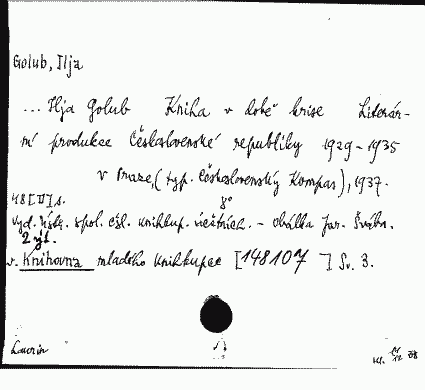 Golub, Ilja
... Ilja Golub Kniha v době krise Literár-
ní produkce Československé republiky 1929-1935
v Praze, (typ. Československý Kompas), 1937.
48 [II] s. 8°
Vyd. spol. čsl. knihkup. účetních. - obálka Jar. Švába.
2 výt.
v. Knihovna mladého knihkupce [148107 ] Sv. 3.
Laurin